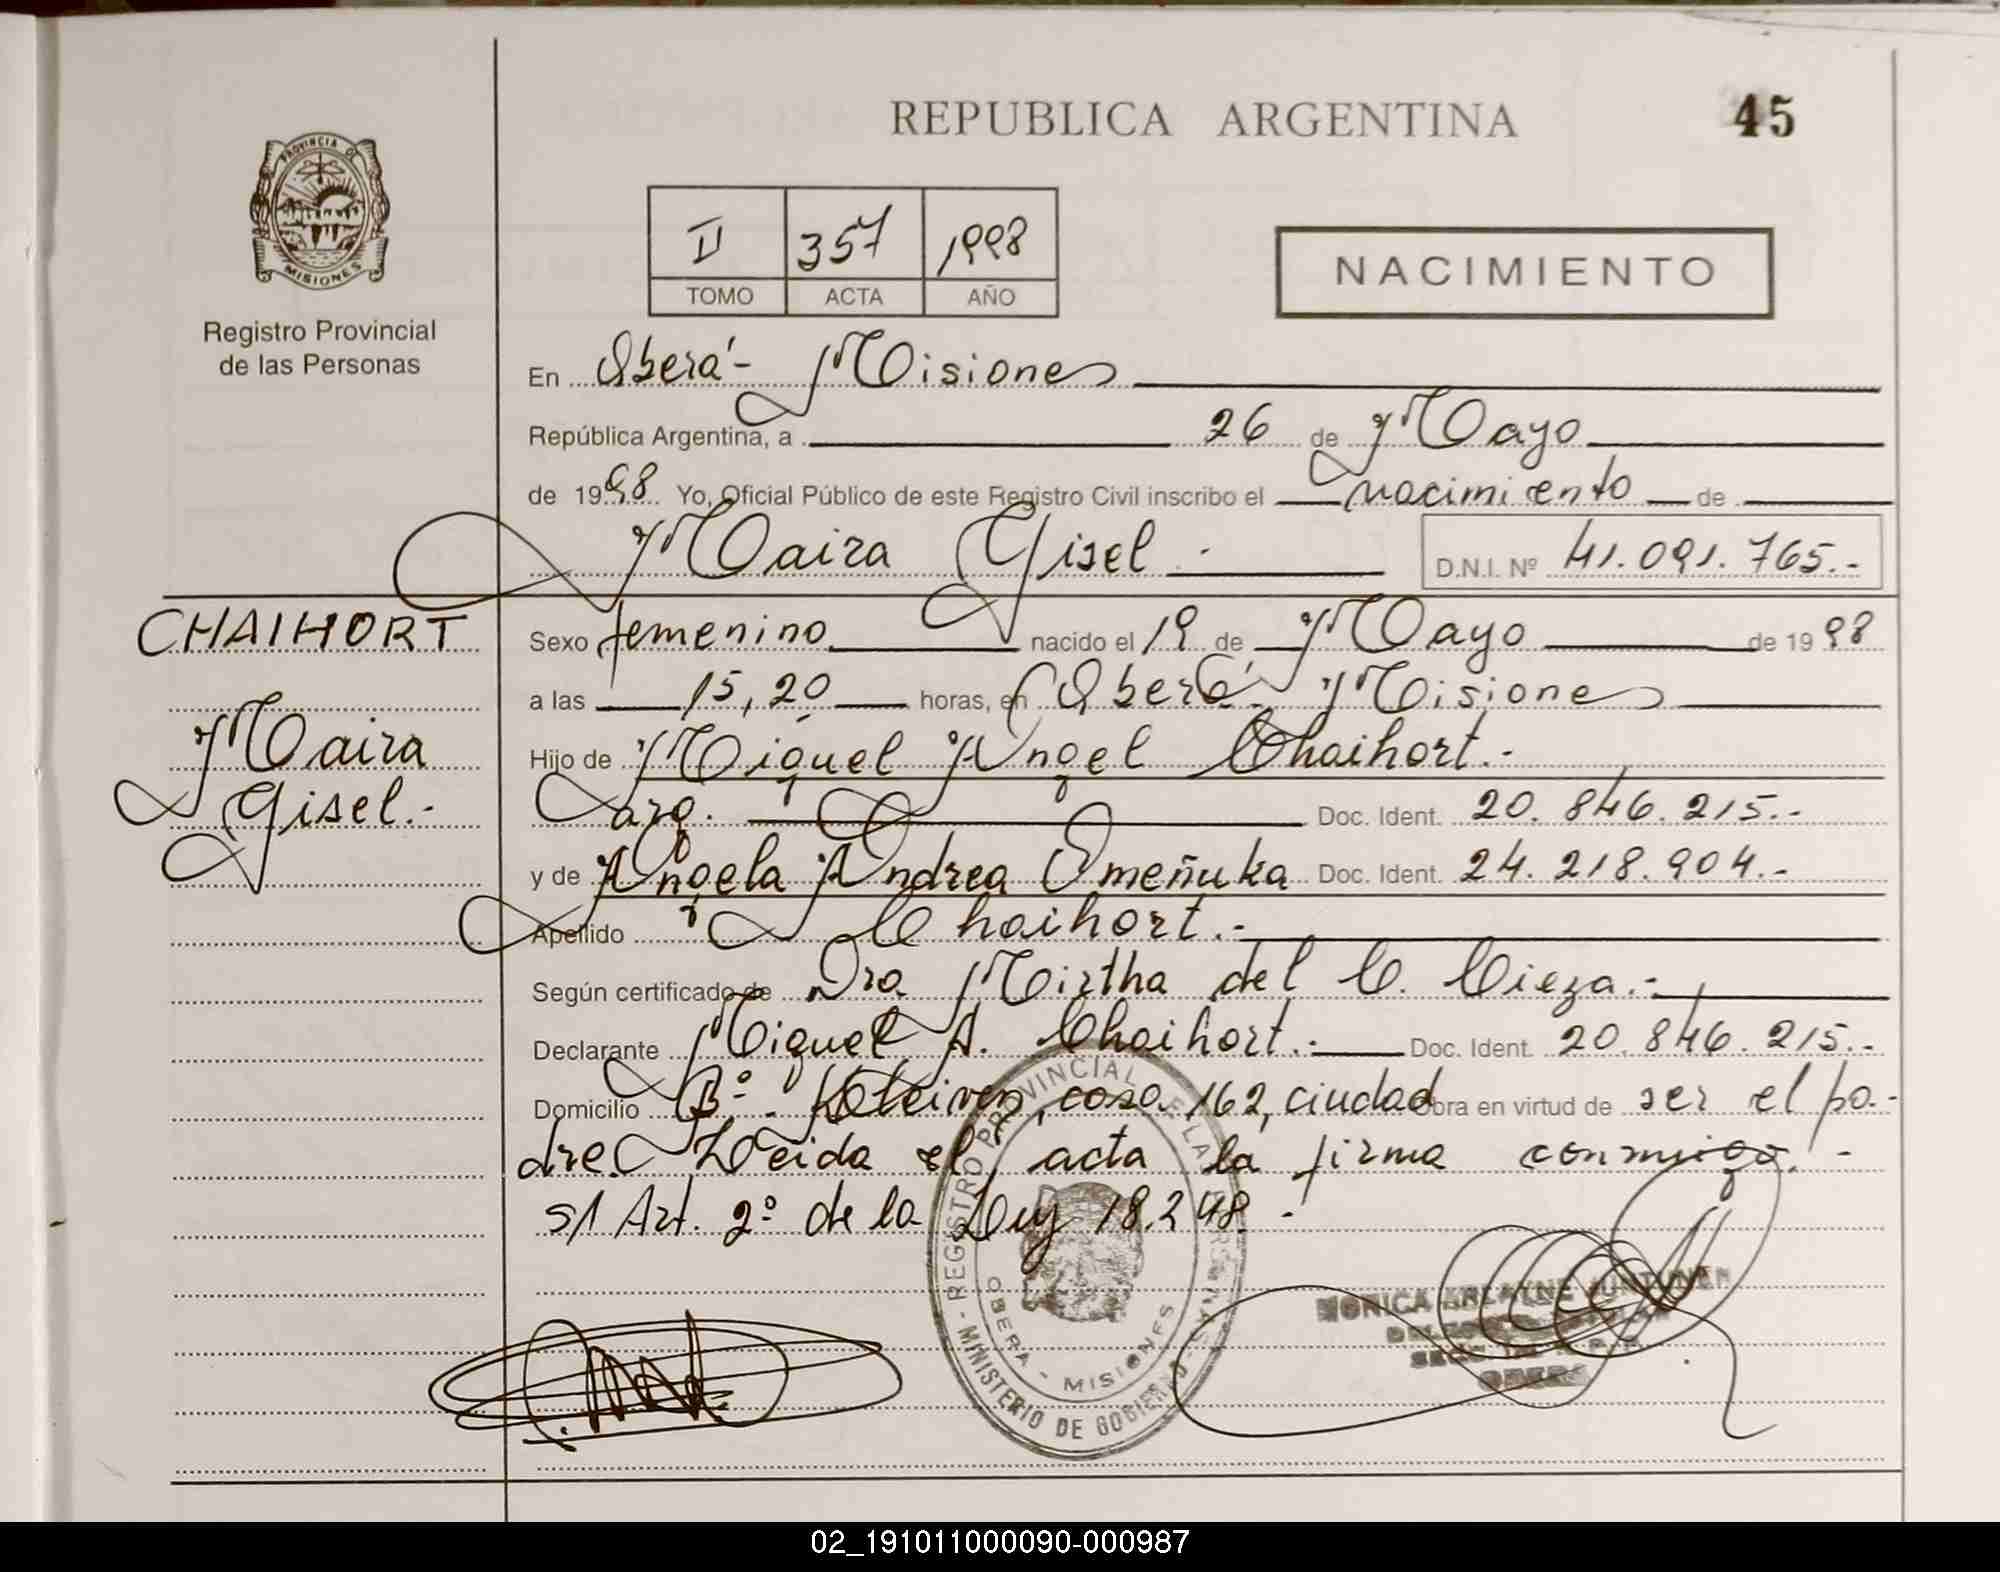 REPUBLICA ARGENTINA
45
PROVINCIA DE
MISIONES
Registro Provincial
de las Personas
II 357 1998
TOMO ACTA AÑO
NACIMIENTO
En Oberá - Misiones
República Argentina, a 26 de Mayo
de 1998 Yo, Oficial Público de este Registro Civil inscribo el nacimiento de
Maira Gisel .
D.N.I. Nº 41.091.765.-
CHAIHORT
Maira
Gisel.-
Sexo femenino nacido el 19 de Mayo de 1998
a las 15,20 horas, en Oberá - Misiones
Hijo de Miguel Angel Chaihort.-
arg. Doc. Ident. 20.846.215.-
y de Angela Andrea Omeñuka Doc. Ident. 24.218.904.-
Apellido Chaihort.-
Según certificado de Dra Mirtha del C. Cieza.-
Declarante Miguel A. Chaihort.- Doc. Ident. 20.846.215.-
Domicilio Bº.- casa 162, ciudad Obra en virtud de ser el pa-
dre. Leida el acta la firma conmigo.-
s/ Art. 2º de la Ley 18.248.-
REGISTRO PROVINCIAL DE LAS PERSONAS
MINISTERIO DE GOBIERNO
OBERA - MISIONES
MONICA ARLAYNE
OBERA
02_191011000090-000987